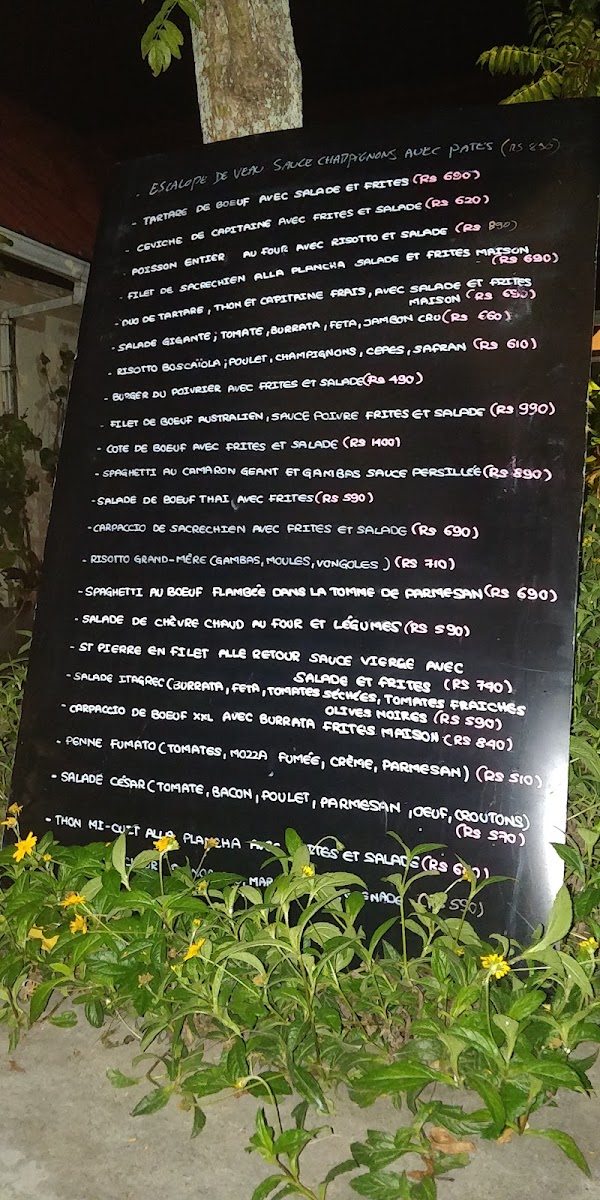 - ESCALOPE DE VEAU SAUCE CHAMPIGNONS AVEC PATES (RS 890)
- TARTARE DE BOEUF AVEC SALADE ET FRITES (RS 690)
- CEVICHE DE CAPITAINE AVEC FRITES ET SALADE (RS 620)
- POISSON ENTIER AU FOUR AVEC RISOTTO ET SALADE (RS 890)
- FILET DE SACRECHIEN ALLA PLANCHA SALADE ET FRITES MAISON
(RS 690)
- DUO DE TARTARE, THON ET CAPITAINE FRAIS, AVEC SALADE ET FRITES
MAISON (RS 650)
- SALADE GIGANTE; TOMATE, BURRATA, FETA, JAMBON CRU (RS 660)
- RISOTTO BOSCAÏOLA; POULET, CHAMPIGNONS, CEPES, SAFRAN (RS 610)
- BURGER DU POIVRIER AVEC FRITES ET SALADE (RS 490)
- FILET DE BOEUF AUSTRALIEN, SAUCE POIVRE FRITES ET SALADE (RS 990)
- COTE DE BOEUF AVEC FRITES ET SALADE (RS 1400)
- SPAGHETTI AU CAMARON GEANT ET GAMBAS SAUCE PERSILLÉE (RS 890)
- SALADE DE BOEUF THAI AVEC FRITES (RS 590)
- CARPACCIO DE SACRECHIEN AVEC FRITES ET SALADE (RS 690)
- RISOTTO GRAND-MÊRE (GAMBAS, MOULES, VONGOLES) (RS 710)
- SPAGHETTI AU BOEUF FLAMBÉE DANS LA TOMME DE PARMESAN (RS 690)
- SALADE DE CHÈVRE CHAUD AU FOUR ET LÉGUMES (RS 590)
- ST PIERRE EN FILET ALLE RETOUR SAUCE VIERGE AVEC
SALADE ET FRITES (RS 740)
- SALADE ITAGREC (BURRATA, FETA, TOMATES SÉCHÉES, TOMATES FRAICHES
OLIVES NOIRES (RS 590)
- CARPACCIO DE BOEUF XXL AVEC BURRATA FRITES MAISON (RS 840)
- PENNE FUMATO (TOMATES, MOZZA FUMÉE, CRÈME, PARMESAN) (RS 510)
- SALADE CÉSAR (TOMATE, BACON, POULET, PARMESAN, OEUF, CROUTONS)
(RS 570)
- THON MI-CUIT ALLA PLANCHA FRITES ET SALADE (RS
590)